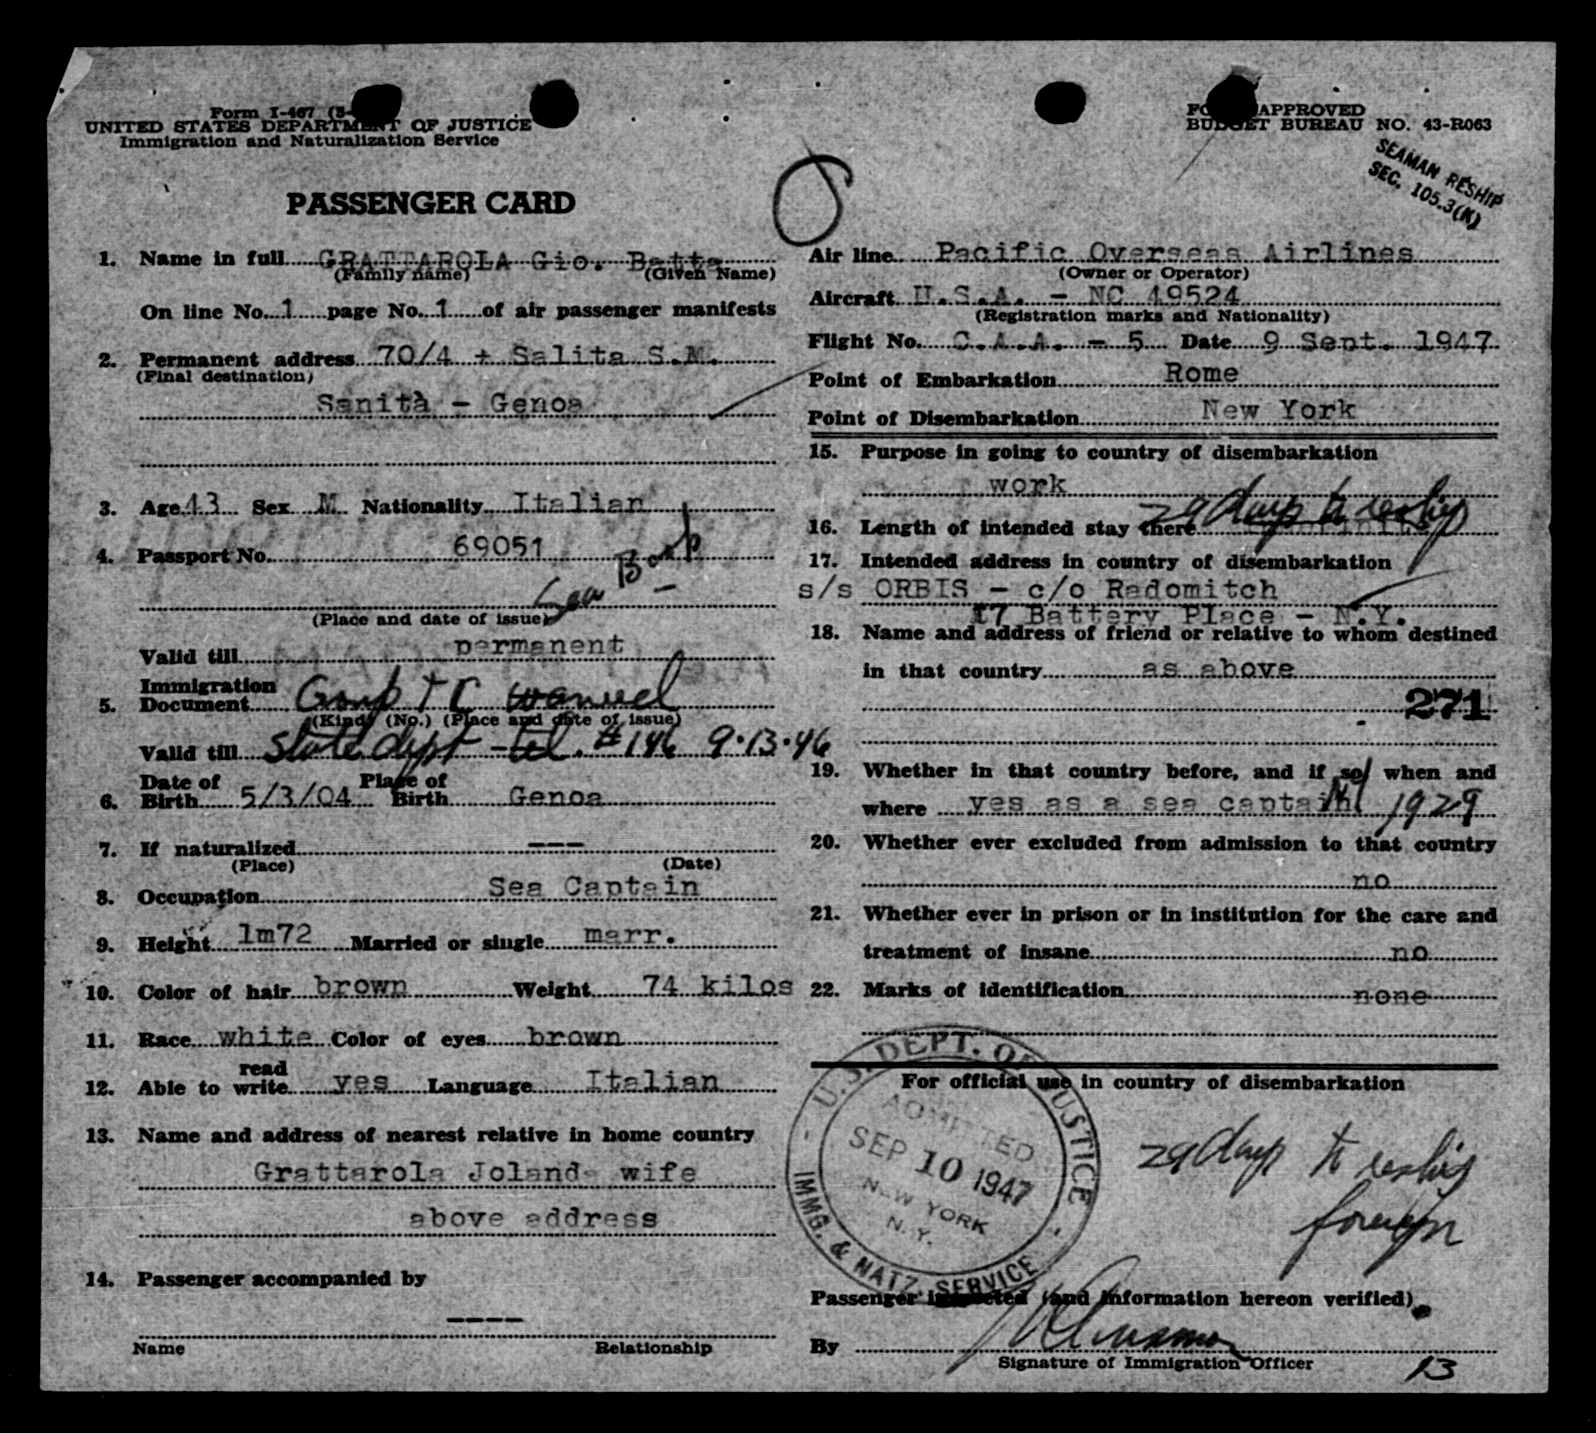 Form I-467 (5-
UNITED STATES DEPARTMENT OF JUSTICE
Immigration and Naturalization Service
PASSENGER CARD
1. Name in full GRATTAROLA Gio. Batta
(Family name) (Given Name)
On line No. 1 page No. 1 of air passenger manifests
2. Permanent address 70/4 + Salita S.M.
(Final destination)
Sanità - Genoa
3. Age 43 Sex M Nationality Italian
4. Passport No. 69051
Sea Book
(Place and date of issue)
Valid till permanent
5. Immigration Document Group T C
(Kind) (No.) (Place and date of issue)
Valid till State dept tel. #146 9·13·46
6. Date of Birth 5/3/04 Place of Birth Genoa
7. If naturalized ---
(Place) (Date)
8. Occupation Sea Captain
9. Height 1m72 Married or single marr.
10. Color of hair brown Weight 74 kilos
11. Race white Color of eyes brown
12. Able to read write yes Language Italian
13. Name and address of nearest relative in home country
Grattarola Jolanda wife
above address
14. Passenger accompanied by
----
Name Relationship
FORM APPROVED
BUDGET BUREAU NO. 43-R063
SEAMAN RESHIP
SEC. 105.3(K)
Air line Pacific Overseas Airlines
(Owner or Operator)
Aircraft U.S.A. - NC 49524
(Registration marks and Nationality)
Flight No. C.A.A. - 5 Date 9 Sept. 1947
Point of Embarkation Rome
Point of Disembarkation New York
15. Purpose in going to country of disembarkation
work
16. Length of intended stay there 29 days to reship
17. Intended address in country of disembarkation
s/s ORBIS - c/o Radomitch
17 Battery Place - N.Y.
18. Name and address of friend or relative to whom destined
in that country as above
271
19. Whether in that country before, and if so, when and
where yes as a sea captain NY 1929
20. Whether ever excluded from admission to that country
no
21. Whether ever in prison or in institution for the care and
treatment of insane no
22. Marks of identification none
For official use in country of disembarkation
U.S. DEPT. OF JUSTICE
ADMITTED
SEP 10 1947
NEW YORK
N.Y.
IMMG. & NATZ. SERVICE
29 days to reship
foreign
Passenger inspected (and information hereon verified)
By
Signature of Immigration Officer
13